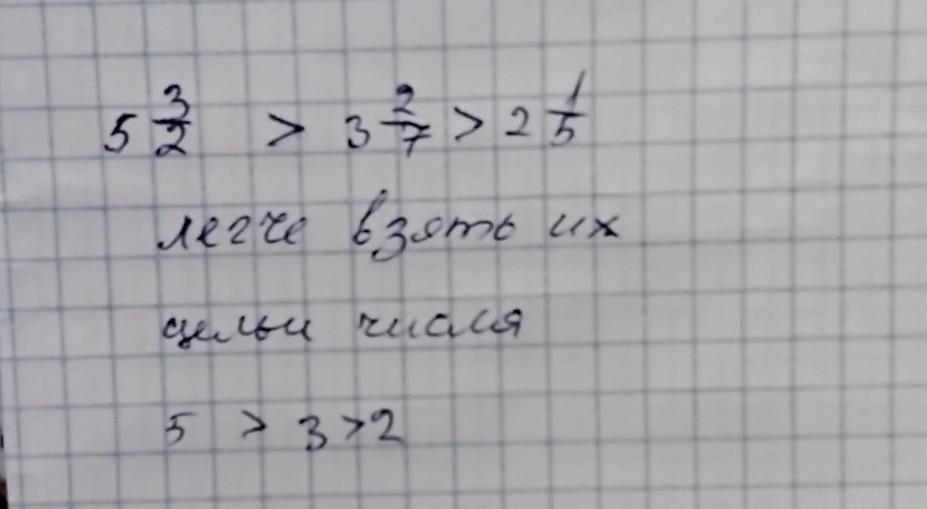 5 3/2 > 3 2/7 > 2 1/5
легче взять их
целыи числя
5 > 3 > 2